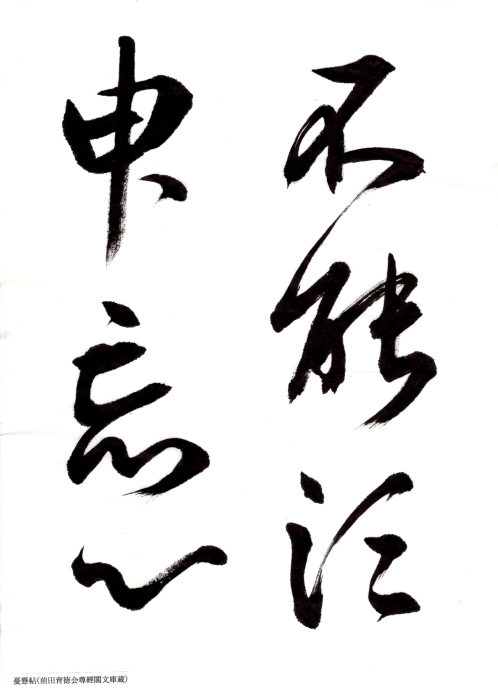 不能須
臾忘心
憂懸帖(前田育徳会尊經閣文庫蔵)